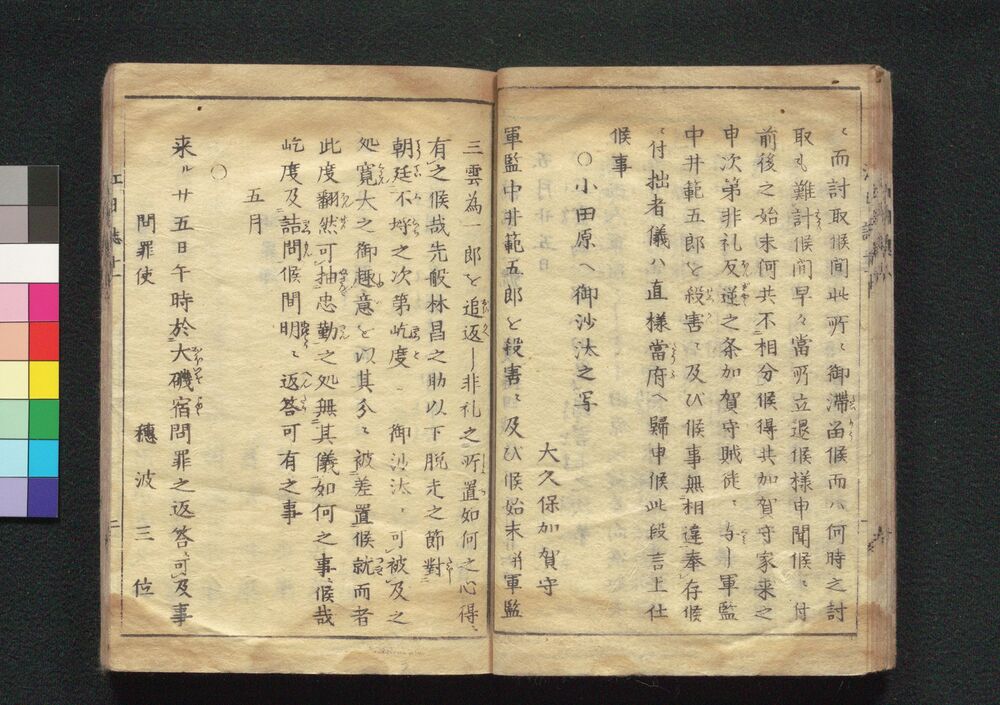 ニ而討取候間此所ニ御滞留候而ハ何時之討
取も難計候間早々當所立退候様申聞候ニ付
前後之始末何共不相分候得共加賀守家来之
申次第非礼反逆之条加賀守賊徒ニ与し軍監
中井範五郎を殺害ニ及び候事無相違奉存候
ニ付拙者儀ハ直様當府へ歸申候此段言上仕
候事
○小田原へ御沙汰之写
大久保加賀守
軍監中井範五郎を殺害ニ及び候始末併軍監
三雲為一郎を追返し非礼之所置如何之心得ニ
有之候哉先般林昌之助以下脱走之節對
朝廷不埒之次第屹度 御沙汰ニ可被及之
処寛大之御趣意を以其分ニ被差置候就而者
此度翻然可抽忠勤之処無其儀如何之事ニ候哉
屹度及詰問候間明ニ返答可有之事
五月
○
来ル廿五日午時於大磯宿問罪之返答可及事
問罪使 穂波三位
江日誌十一 二